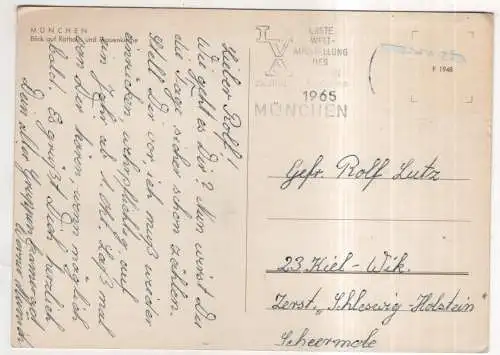 MÜNCHEN
Blick auf Rathaus und Frauenkirche
Lieber Rolf!
Wie geht es Dir? Nun wirst Du
die Tage sicher schon zählen.
Stell Dir vor ich muß wieder
einrücken wehrpflichtig auf
ein Jahr ab 1. Okt. Laß mal
von Dir hören, wenn möglich
bald. Es grüßt Dich herzlich
Dein alter Gruppenkamerad
Werner
ERSTE
WELT-
AUSSTELLUNG
DES
1965
MÜNCHEN
F 1948
Gefr. Rolf Lutz
23 Kiel-Wik.
Zerst. „Schleswig-Holstein"
Scheermole